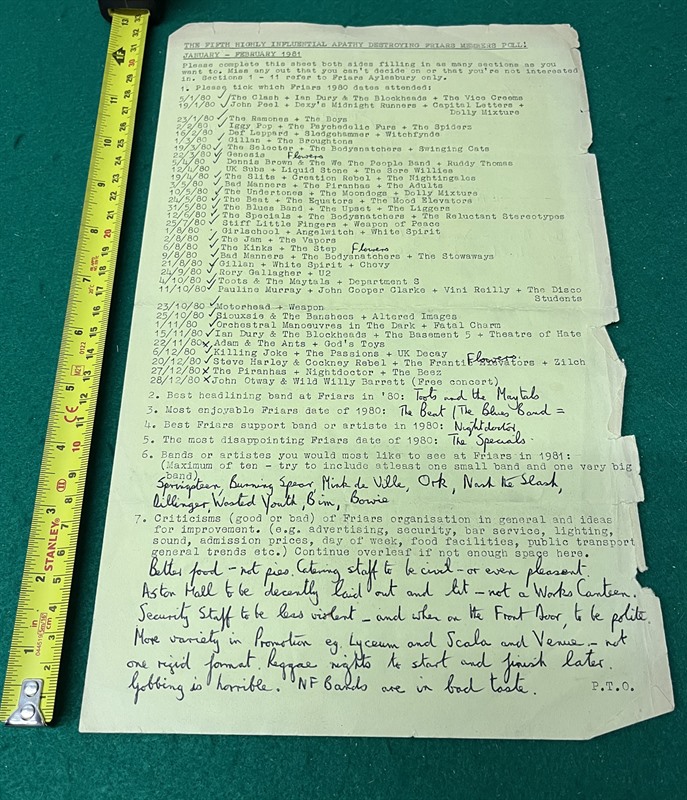 THE FIFTH HIGHLY INFLUENTIAL APATHY DESTROYING FRIARS MEMBERS POLL!
JANUARY - FEBRUARY 1981
Please complete this sheet both sides filling in as many sections as you
want to. Miss any out that you can't decide on or that you're not interested
in. Sections 1 - 11 refer to Friars Aylesbury only.
1. Please tick which Friars 1980 dates attended:
5/1/80 ✓ The Clash + Ian Dury & The Blockheads + The Vice Creems
19/1/80 ✓ John Peel + Dexy's Midnight Runners + Capital Letters +
Dolly Mixture
23/1/80 ✓ The Ramones + The Boys
2/2/80 ✓ Iggy Pop + The Psychedelic Furs + The Spiders
16/2/80 ✓ Def Leppard + Sledgehammer + Witchfynde
1/3/80 ✓ Gillan + The Broughtons
19/3/80 ✓ The Selecter + The Bodysnatchers + Swinging Cats
22/3/80 ✓ Genesis Flowers
5/4/80 ✓ Dennis Brown & The We The People Band + Ruddy Thomas
12/4/80 UK Subs + Liquid Stone + The Sore Willies
19/4/80 ✓ The Slits + Creation Rebel + The Nightingales
3/5/80 ✓ Bad Manners + The Piranhas + The Adults
10/5/80 ✓ The Undertones + The Moondogs + Dolly Mixture
24/5/80 ✓ The Beat + The Equators + The Mood Elevators
31/5/80 ✓ The Blues Band + The Upset + The Liggers
12/6/80 ✓ The Specials + The Bodysnatchers + The Reluctant Stereotypes
25/7/80 ✓ Stiff Little Fingers + Weapon of Peace
1/8/80 Girlschool + Angelwitch + White Spirit
2/8/80 ✓ The Jam + The Vapors
6/8/80 ✓ The Kinks + The Step Flowers
9/8/80 ✓ Bad Manners + The Bodysnatchers + The Stowaways
21/8/80 ✓ Gillan + White Spirit + Chevy
24/9/80 ✓ Rory Gallagher + U2
4/10/80 ✓ Toots & The Maytals + Department S
11/10/80 ✓ Pauline Murray + John Cooper Clarke + Vini Reilly + The Disco
Students
23/10/80 ✓ Motorhead + Weapon
25/10/80 ✓ Siouxsie & The Banshees + Altered Images
1/11/80 ✓ Orchestral Manoeuvres in The Dark + Fatal Charm
15/11/80 ✓ Ian Dury & The Blockheads + The Basement 5 + Theatre of Hate
22/11/80 x Adam & The Ants + God's Toys
6/12/80 ✓ Killing Joke + The Passions + UK Decay
20/12/80 ✓ Steve Harley & Cockney Rebel + The Frantic Elevators + Zilch Flowers
27/12/80 x The Piranhas + Nightdoctor + The Beez
28/12/80 x John Otway & Wild Willy Barrett (Free concert)
2. Best headlining band at Friars in '80: Toots and the Maytals
3. Most enjoyable Friars date of 1980: The Beat / The Blues Band =
4. Best Friars support band or artiste in 1980: Nightdoctor
5. The most disappointing Friars date of 1980: The Specials
6. Bands or artistes you would most like to see at Friars in 1981:
(Maximum of ten - try to include atleast one small band and one very big
band)
Springsteen Burning Spear Mink de Ville, Ork, Nash the Slash,
Dillinger, Wasted Youth, Bim, Bowie
7. Criticisms (good or bad) of Friars organisation in general and ideas
for improvement. (e.g. advertising, security, bar service, lighting,
sound, admission prices, day of week, food facilities, public transport
general trends etc.) Continue overleaf if not enough space here.
Better food - not pies. Catering staff to be civil - or even pleasant.
Aston Hall to be decently laid out and lit - not a Works Canteen.
Security Staff to be less violent - and when on the Front Door, to be polite.
More variety in Promotion eg. Lyceum and Scala and Venue - not
one rigid format. Reggae nights to start and finish later.
Gobbing is horrible. NF Bands are in bad taste. P.T.O.
STANLEY